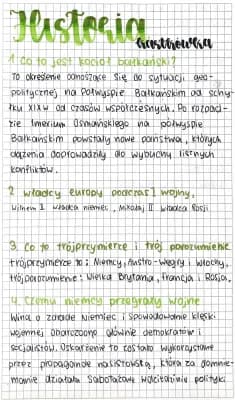 Historia
kartkówka
1. Co to jest kocioł bałkański?
To określenie odnoszące się do sytuacji geo-
politycznej na Półwyspie Bałkańskim od schy-
łku XIX w do czasów współczesnych. Po rozpad-
zie Imerium Osmańskiego na półwyspie
Bałkańskim powstały nowe państwa, których
dążenia doprowadziły do wybuchu licznych
konfliktów.
2 władcy europy podczas I wojny,
Wilhelm I władca niemiec, Mikołaj II władca Rosji
3. Co to trójprzymierze i trój porozumienie
trójprzymierze to: Niemcy, Austro-Węgry i Włochy,
trójporozumienie: Wielka Brytania, Francja i Rosja,
4. Czemu niemcy przegrały wojne
Winą o zdradę Niemiec i spowodowanie klęski
wojennej obarczono głównie demokratów i
socjalistów. Oskarżenie to zostało wykorzystane
przez propagandę nazistowską, która za domnie-
manie działała sabotażowe polityki